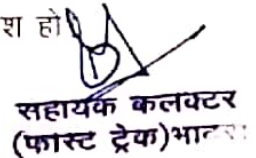 श हो
सहायक कलक्टर
(फास्ट ट्रेक)